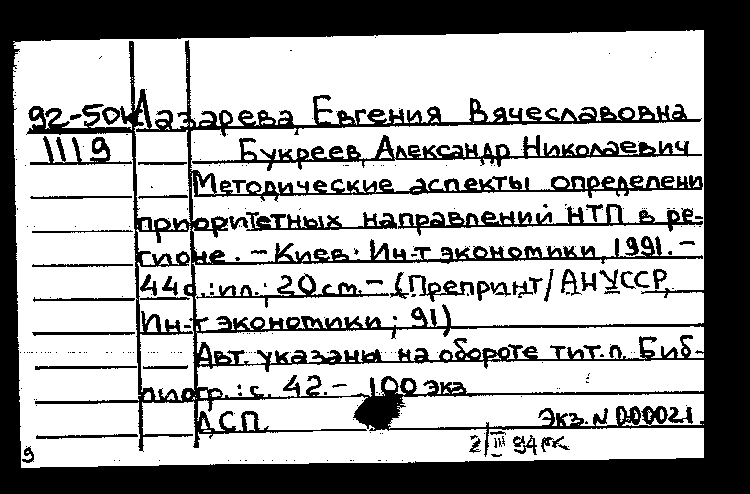 92-50к Лазарева, Евгения Вячеславовна
1119 Букреев, Александр Николаевич
Методические аспекты определени
приоритетных направлений НТП в ре-
гионе. - Киев: Ин-т экономики, 1991. -
44с.: ил.; 20 см. - (Препринт/АН УССР,
Ин-т экономики; 91)
Авт. указаны на обороте тит. л. Биб-
лиогр.: с. 42. - 100 экз
ДСП Экз. N 000021.
2/III 94
9